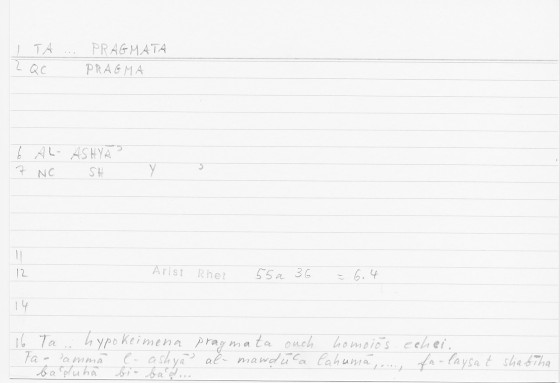 1 TA ... PRAGMATA
2 QC PRAGMA
6 AL- ASHYĀʾ
7 NC SH Y ʾ
11
12 Arist Rhet 55a 36 = 6.4
14
16 Ta .. hypokeimena pragmata ouch homoiōs echei.
Fa-ʾammā l-ashyāʾ al-mawḍūʿa lahumā,..., fa-laysat shabīha
baʿḍuhā bi-baʿḍ...